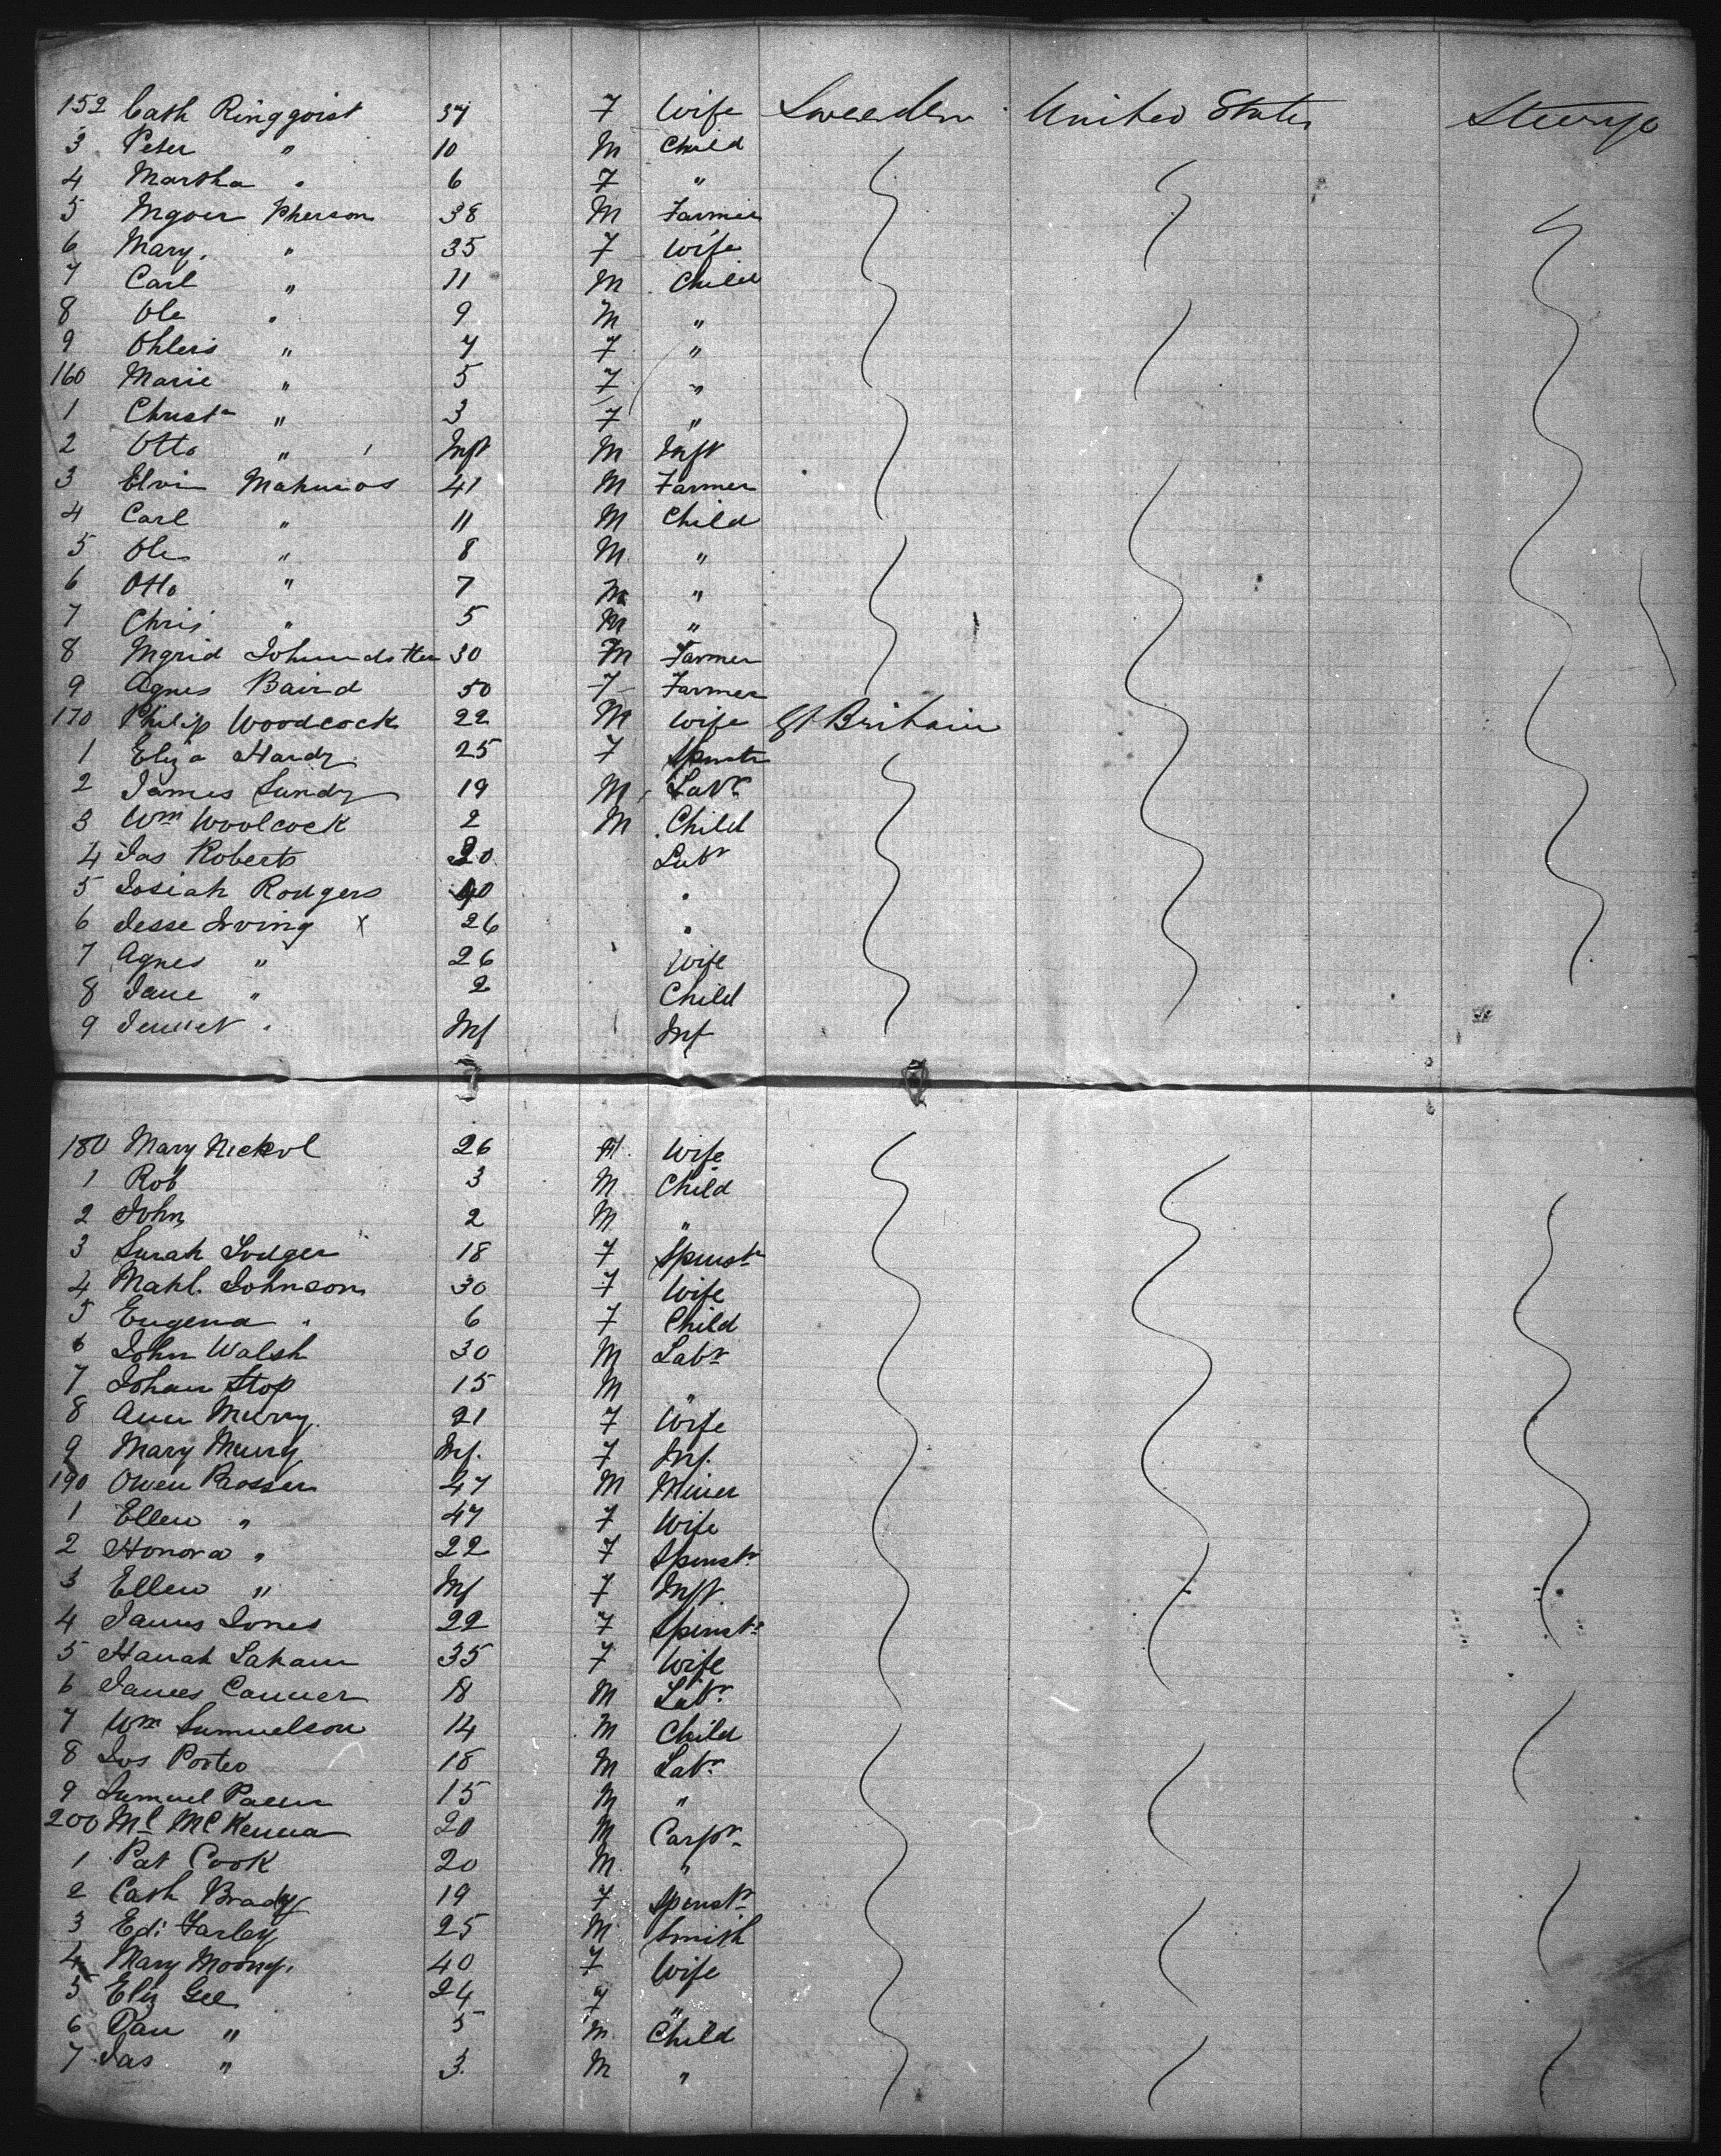 152 Cath Ringqvist 37 F Wife Sweeden United States Steerage
3 Peter " 10 M Child
4 Martha " 6 F "
5 Ingver Pherson 38 M Farmer
6 Mary " 35 F Wife
7 Carl " 11 M Child
8 Ole " 9 M "
9 Ohlers " 7 F "
160 Marie " 5 F "
1 Christn " 3 F "
2 Otto " Inft M Inft
3 Elvin 41 M Farmer
4 Carl " 11 M Child
5 Ole " 8 M "
6 Otto " 7 M "
7 Chris " 5 M "
8 Ingrid 30 M Farmer
9 Agnes Baird 50 F Farmer
170 Philip Woodcock 22 M Wife Gt Britain
1 Eliza Hardy 25 F Spinstr
2 James Lundy 19 M Labr
3 Wm Woolcock 2 M Child
4 Jas Roberts 20 Labr
5 Josiah Rodgers 40 "
6 Jesse Irving x 26 "
7 Agnes " 26 Wife
8 Jane " 2 Child
9 Jennet " Inf Inf
180 Mary Nickol 26 M Wife
1 Rob 3 M Child
2 John 2 M "
3 Sarah Lodger 18 F Spinstr
4 Mahl. Johnson 30 F Wife
5 Eugena " 6 F Child
6 John Walsh 30 M Labr
7 Johan Stop 15 M "
8 Ann Murry 21 F Wife
9 Mary Murry Inf. F Inf.
190 Owen Prosser 47 M Miner
1 Ellen " 47 F Wife
2 Honora " 22 F Spinstr
3 Ellen " Inf F Inft
4 James Jones 22 F Spinstr
5 Hanah Laham 35 F Wife
6 James Conner 18 M Labr
7 Wm Samuelson 14 M Child
8 Jos Porteo 18 M Labr
9 Samuel 15 M "
200 Ml McKenna 20 M Carpr
1 Pat Cook 20 M "
2 Cath Brady 19 F Spinstr
3 Ed: Farley 25 M Smith
4 Mary Moony 40 F Wife
5 Eliz Gee 24 F "
6 Dan " 5 M Child
7 Jas " 3 M "